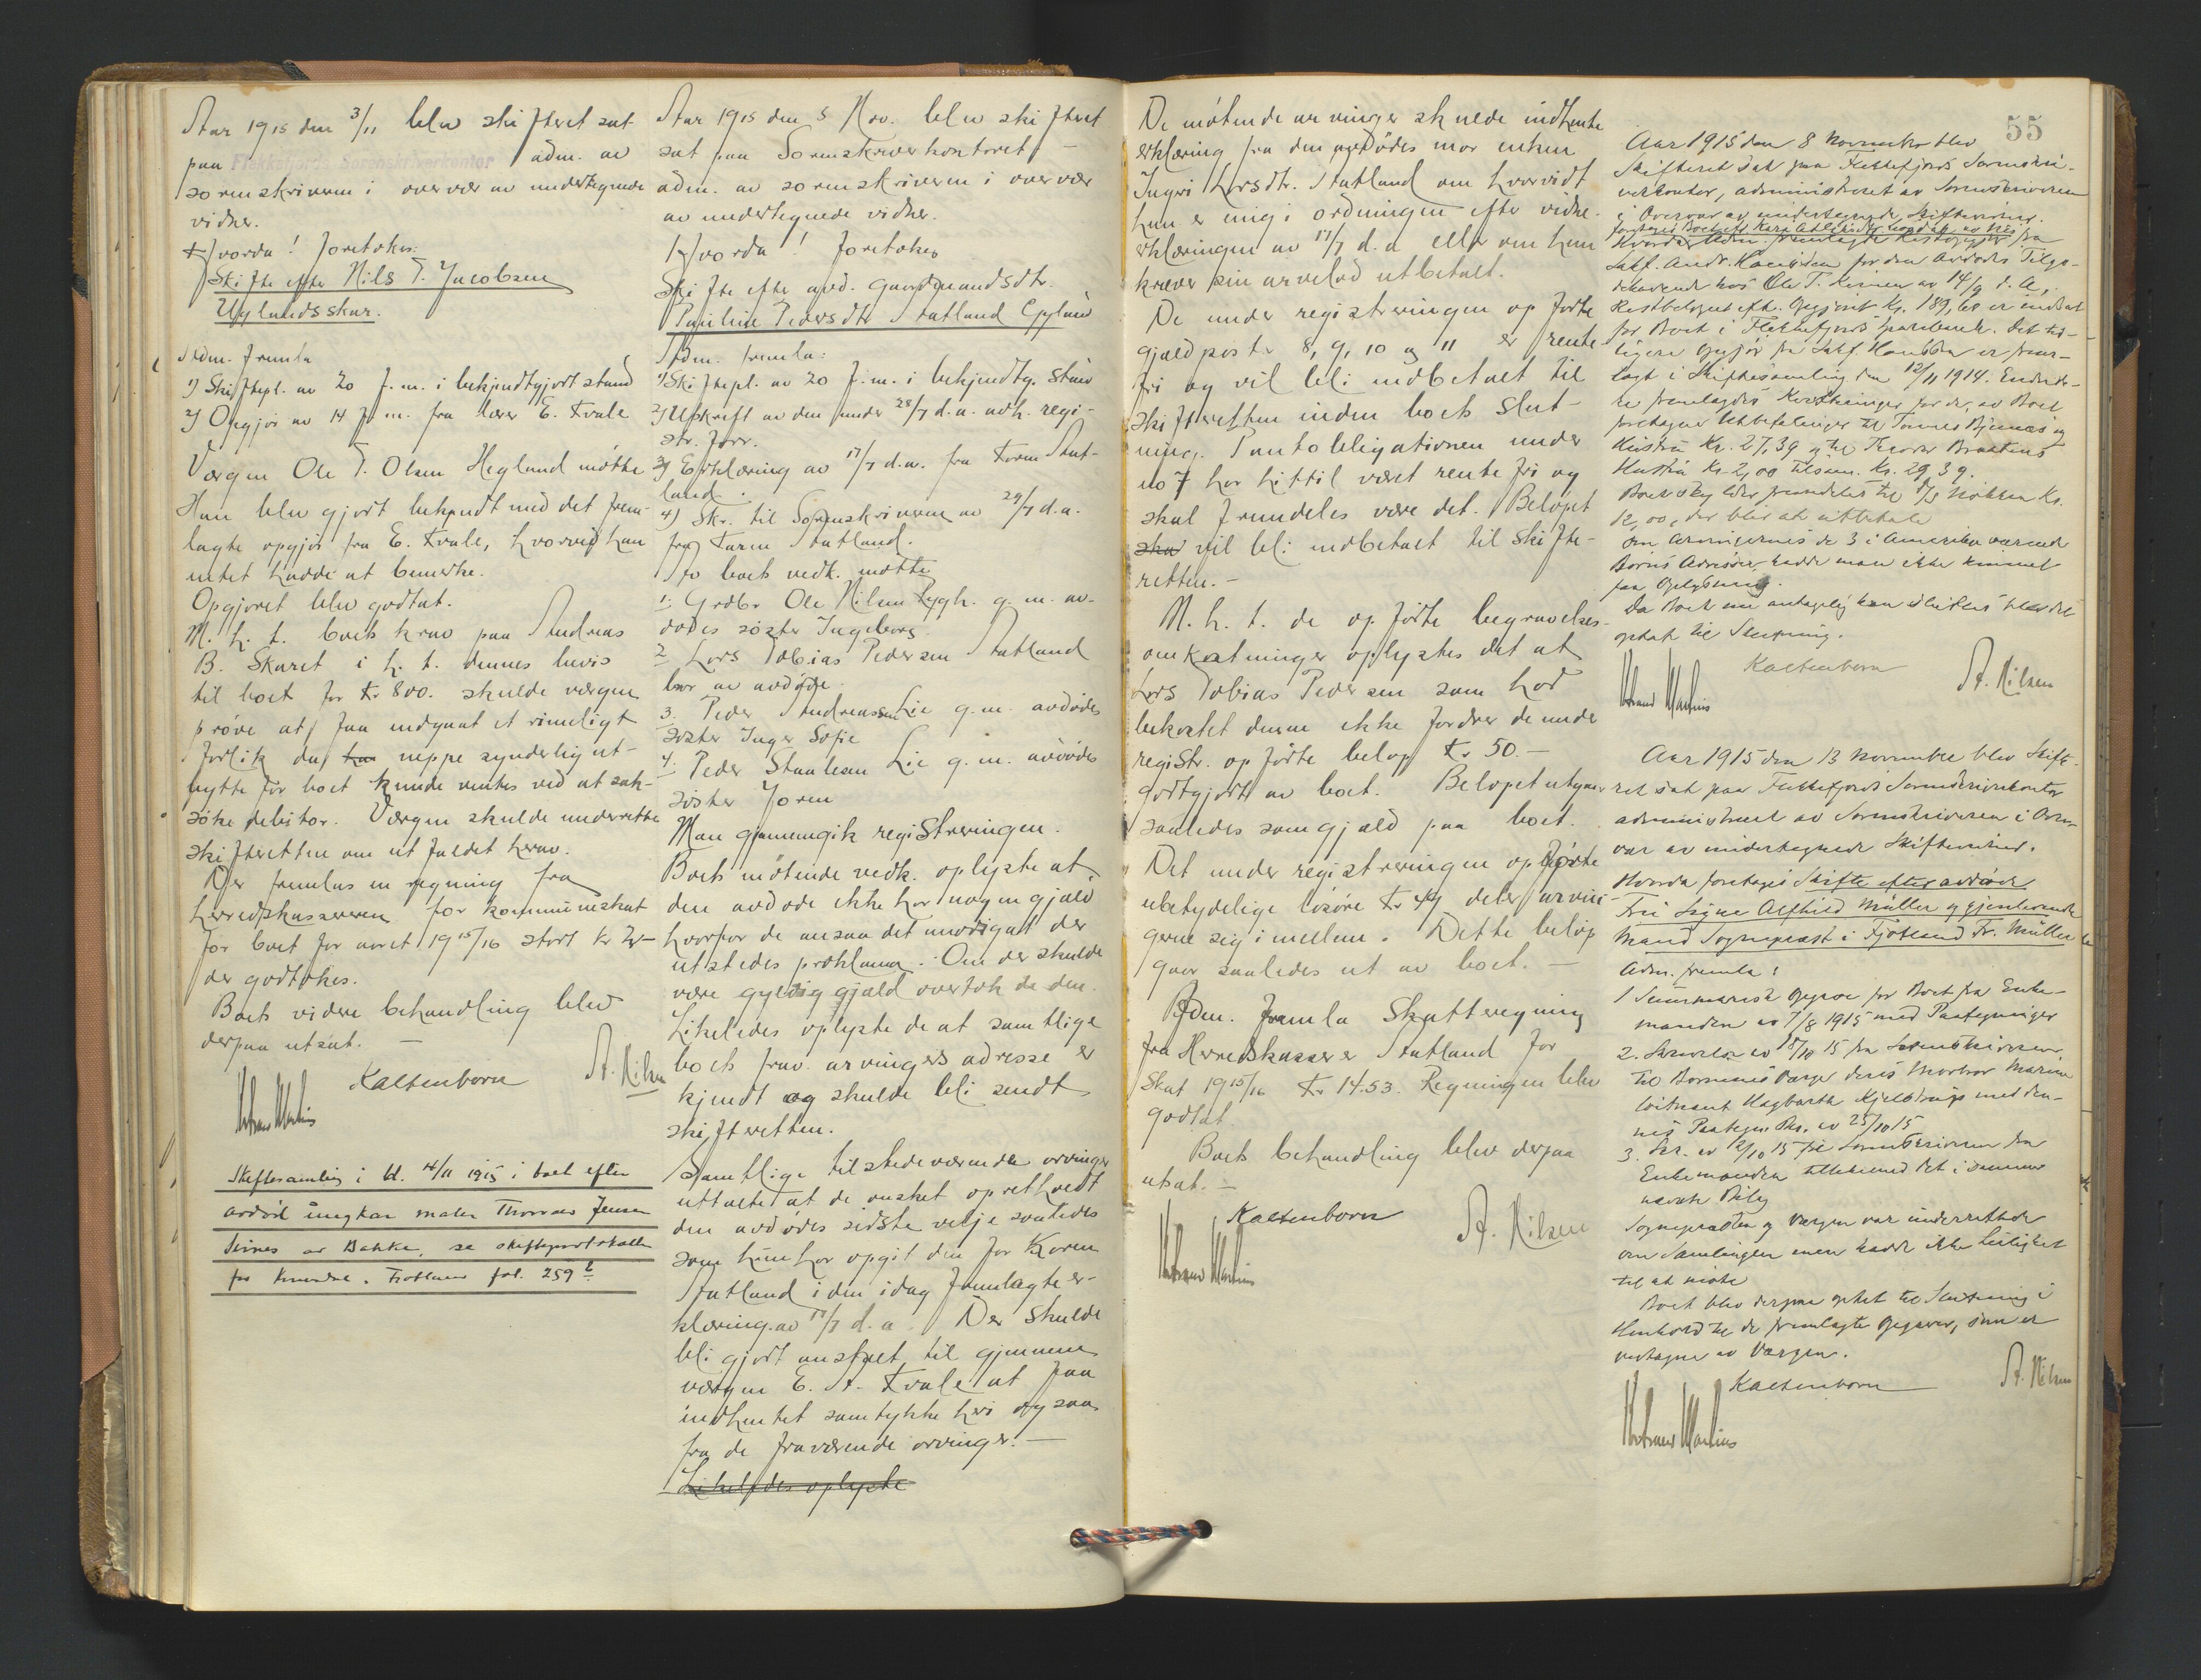 Aar 1915 den 3/11 blev skifteret sat
paa Flekkefjords Sorenskriverkontor adm. av
sorenskriveren i overvær av undertegnede
vidner.
Hvorda! foretokes:
Skifte efter Nils T. Jacobsen
Uglandsskar.
Adm. fremla
1) Skiftepl. av 20 f.m. i bekjendtgjort stand
2) Opgjör av 14 f.m. fra lærer E. Kvale
Værgen Ole T. Olsen Hegland mötte
Han blev gjort bekjendt med det frem-
lagte opgjör fra E. Kvale, hvorved han
intet hadde at bemerke.
Opgjöret blev godtat.
M. h. t. boets krav paa Andreas
B. Skaret i h. t. dennes bevis
til boet for kr 800. skulde værgen
pröve at faa indgaat et rimeligt
forlik da han neppe synderlig ut-
bytte for boet kunde ventes ved at sak-
söke debitor. Værgen skulde underrette
skifteretten om utfaldet herav.
Der fremlas en regning fra
herredskassereren for kommuneskat
for boet for aaret 1915/16 stort kr
der godtokes.
Boets videre behandling blev
derpaa utsat. —
Kaltenborn A. Nilsen
Skiftesamling i kl. 4/11 1915 i boet efter
avdöd ungkar maler Thomas Jensen
Sirnes av Bakke, se skifteprotokollen
for Kvinesdal. Fjotland fol. 259 b
Aar 1915 den 5 Nov. blev skifteret
sat paa Sorenskriverkontoret —
adm. av sorenskriveren i overvær
av undertegnede vidner.
Hvorda! foretokes
Skifte efter avd. gaardmandsdtr.
Pauline Pedersdtr Statland Gyland
Adm. fremla:
1) Skiftepl. av 20 f.m. i bekjendtg. stand
2) Utskrift av den under 28/7 d.a. avh. regi-
str. forr.
3) Erklæring av 17/7 d.a. fra Karen Stat-
land.
4) Skr. til Sorenskriveren av 29/7 d.a.
fra Karen Statland.
Av boets vedk. mötte
1. Grdbr Ole Nilsen Rygh. g. m. av-
dödes söster Ingeborg.
2. Lars Tobias Pedersen Statland
bror av avdöde.
3. Peder Andreassen Lie g.m. avdödes
söster Inger Sofie
4. Peder Staalesen Lie g.m. avdödes
söster Joren
Man gjennemgik registreringen.
Boets mötende vedk. oplyste at
den avdöde ikke har nogen gjæld
hvorfor de ansaa det unödigat der
utstedes proklama. Om der skulde
være gyldig gjæld overtok de den.
Likeledes oplyste de at samtlige
boets frav. arvingers adresse er
kjendt og skulde bli sendt
skifteretten.
Samtlige tilstedeværende arvinger
uttalte at de önsket opretholdt
den avdödes sidste vilje saaledes
som hun har opgit den for Karen
Statland i den idag fremlagte er-
klæring av 17/7 d.a. Der skulde
bli gjort anstalt til gjennem
værgen E. A. Kvale at faa
indhentet samtykke heri ogsaa
fra de fraværende arvinger. —
Likeledes oplyste
55
De mötende arvinger skulde indhente
erklæring fra den avdödes mor enken
Ingri Larsdtr. Statland om hvorvidt
hun er enig i ordningen efter vidne-
erklæringen av 17/7 d.a eller om hun
kræver sin arvelod utbetalt.
De under registreringen opförte
gjældposter 8, 9, 10 og 11 er rente
fri og vil bli indbetalt til
skifteretten inden boets slut-
ning. Pantobligationen under
no 7 har hittil været rentefri og
skal fremdeles være det. Belöpet
skal vil bli indbetalt til skifte-
retten. —
M. h. t. de opförte begravelses-
omkostninger oplystes det at
Lars Tobias Pedersen som har
bekostet denne ikke fordrer de under
registr. opförte belöp kr 50.—
godtgjort av boet. Belöpet utgaar
saaledes som gjæld paa boet.
Det under registreringen opförte
ubetydelige lösöre kr deler arvin-
gerne sig imellem. Dette belöp
gaar saaledes ut av boet. —
Adm. fremla Skatteregning
fra Herredskasserer Statland for
Skat 1915/16 kr 14.53. Regningen blev
godtat.
Boets behandling blev derpaa
utsat. —
Kaltenborn A. Nilsen
Aar 1915 den 8 November blev
Skifteret sat paa Flekkefjords Sorenskri-
verkontor, administreret av Sorenskriveren
i Overvær av undertegnede Skiftevidner.
Hvorda Adm. fremlagde fra
Sakf. Andr. Hanssen for den Avdödes Tilgo-
dehavende hos Ole T. av 14/9 d. A.,
Restbelöpet eft. Opgjöret Kr. 189,60 er indsat
for Boet i Flekkefjords Sparebank. Det tid-
ligere Opgjör fra Sakf. Hanssen er frem-
lagt i Skiftesamling den 12/11 1914. Endvide-
re fremlagdes Kvitteringer for de, av Boet
foretagne Utbetalinger til Tönnes og
Hustru Kr. 27,39 og til Teodor Braatens
Hustru Kr 2,00 tilsam. Kr. 29,39.
Boet skylder fremdeles til Kr.
12,00, der blir at utbetale
Om Arvingernes de 3 i Amerika værende
Börns Adresser hadde man ikke kunnet
faa Oplysning.
Da Boet nu antagelig kan sluttes blev det
optat til Slutning.
Kaltenborn A. Nilsen
Aar 1915 den 13 November blev Skifte-
ret sat paa Flekkefjords Sorenskriverkontor
administreret av Sorenskriveren i Over-
vær av undertegnede Skiftevidner.
Hvorda foretoges Skifte efter avdöde
Fru Signe Alfhild Müller og gjenlevende
Mand Sogneprest i Fjotland Fr. Müller
Adm. fremla:
1 Summarisk Opgave for Boet fra Enke-
manden av 7/8 1915 med Paategninger
2. Skrivelse av 18/10 15 fra Sorenskriveren
til Börnenes Værge deres Morbror Marine
löitnant Hagbarth Kjelstrup med den-
nes Paategn. av 25/10 15
3. Skr. av 12/10 15 til Sorenskriveren fra
Enkemanden tillikemed det i samme
nævnte Bilag
Sognepresten og Værgen var underrettede
om Samlingen men hadde ikke Leilighet
til at möte
Boet blev derpaa optat til Slutning i
Henhold til de fremlagte Opgaver, som er
vedtagne av Værgen.
Kaltenborn A. Nilsen